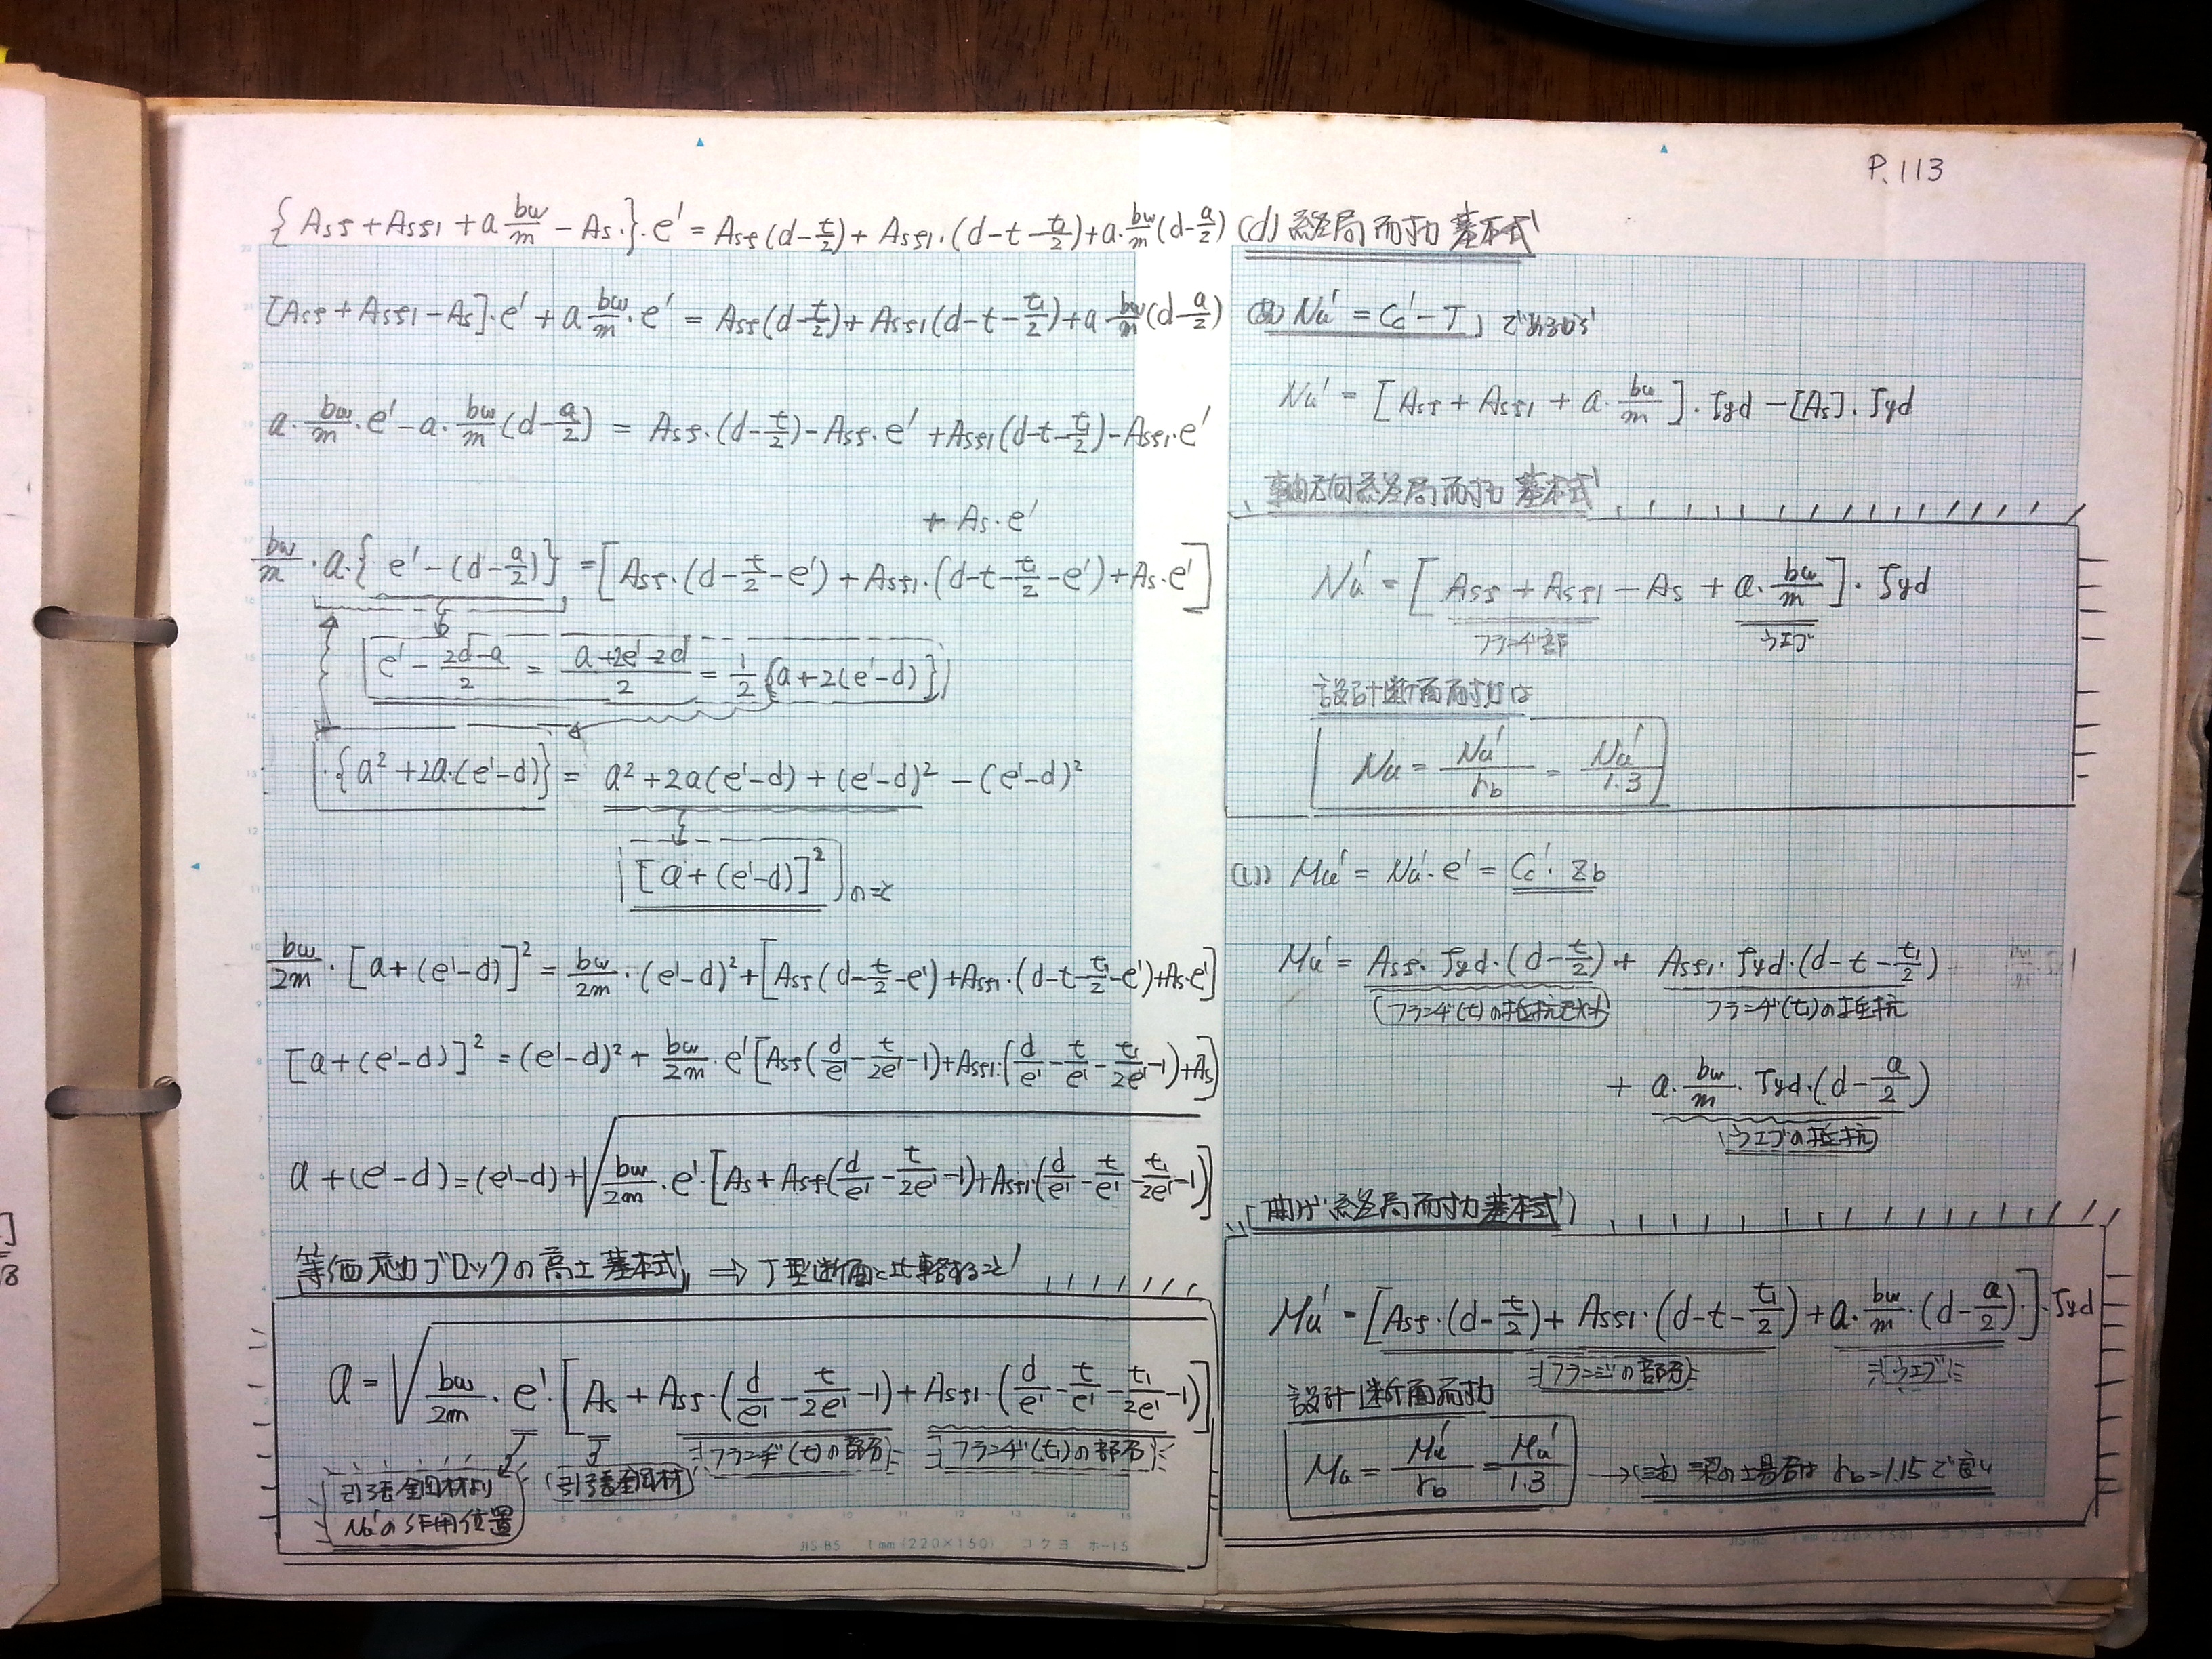 P.113
{Asf + Asf1 + a·bw/m − As.}·e' = Asf(d−t/2) + Asf1·(d−t−t1/2) + a·bw/m(d−a/2)
[Asf + Asf1 − As]·e' + a bw/m·e' = Asf(d−t/2) + Asf1(d−t−t1/2) + a·bw/m(d−a/2)
a·bw/m·e' − a·bw/m(d−a/2) = Asf·(d−t/2) − Asf·e' + Asf1(d−t−t1/2) − Asf1·e'
+ As·e'
bw/m·a·{e'−(d−a/2)} = [Asf·(d−t/2−e') + Asf1·(d−t−t1/2−e') + As·e']
e' − 2d−a/2 = a+2e'−2d/2 = 1/2{a+2(e'−d)}
·{a²+2a·(e'−d)} = a²+2a(e'−d)+(e'−d)²−(e'−d)²
[a+(e'−d)]²
bw/2m·[a+(e'−d)]² = bw/2m·(e'−d)² + [Asf(d−t/2−e') + Asf1·(d−t−t1/2−e') + As·e']
[a+(e'−d)]² = (e'−d)² + bw/2m·e'[Asf(d/e'−t/2e'−1) + Asf1·(d/e'−t/e'−t1/2e'−1) + As]
a+(e'−d) = (e'−d) + √bw/2m·e'·[As + Asf(d/e'−t/2e'−1) + Asf1(d/e'−t/e'−t1/2e'−1)]
等価応力ブロックの高さ基本式 ⇒ T型断面と比較すること!
a = √bw/2m·e'·[As + Asf·(d/e'−t/2e'−1) + Asf1·(d/e'−t/e'−t1/2e'−1)]
フランヂ(t)の部分
フランヂ(t1)の部分
引張鋼材より
Nu'の作用位置
(引張鋼材)
JIS-B5 1mm(220×150) コクヨ ホ-15
(d) 終局耐力基本式
Nu' = Cc' − T」であるから
Nu' = [Asf + Asf1 + a·bw/m]·fyd − [As]·fyd
軸方向終局耐力基本式
Nu' = [Asf + Asf1 − As + a·bw/m]·fyd
フランヂ部
ウエブ
設計断面耐力は
Nu = Nu'/rb = Nu'/1.3
Mu' = Nu'·e' = Cc'·Zb
Mu' = Asf·fyd·(d−t/2) + Asf1·fyd·(d−t−t1/2)
フランヂ(t1)の抵抗
+ a·bw/m·fyd·(d−a/2)
(ウエブの抵抗)
曲げ終局耐力基本式
Mu' = [Asf·(d−t/2) + Asf1·(d−t−t1/2) + a·bw/m·(d−a/2)]·fyd
フランジの部分
ウエブ
設計断面耐力
Mu = Mu'/rb = Mu'/1.3 → (注) 梁の場合は rb=1.15で良い
JIS-B5 1mm(220×150) コクヨ ホ-15